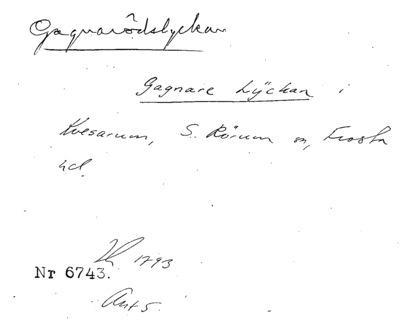 Gagnarödslyckan
Gagnare Lÿckan i
Kvesarum, S. Rörum sn, Frosta
hd.
1793
Nr 6743.
Akt 5.